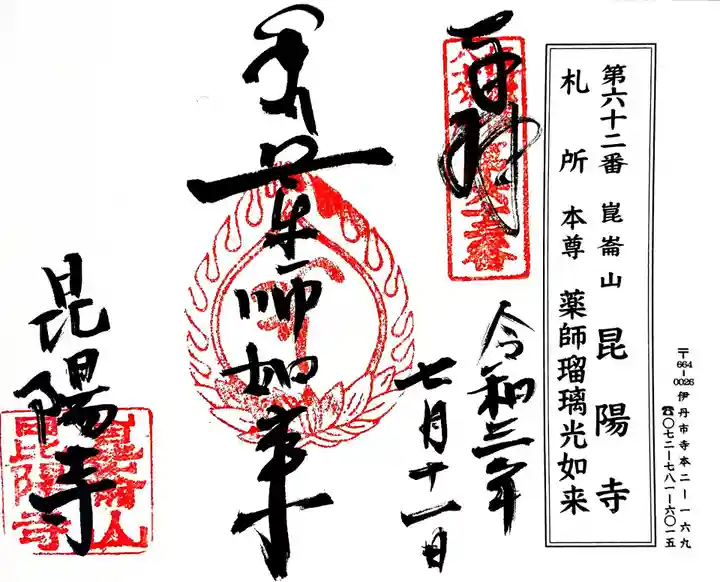 第六十二番 崑崙山 昆陽寺
札所 本尊 薬師瑠璃光如来
〒664-0026 伊丹市寺本二ー一六九
☎〇七二ー七八一ー六〇一五
奉拝
令和三年
七月十一日
薬師如来
昆陽寺